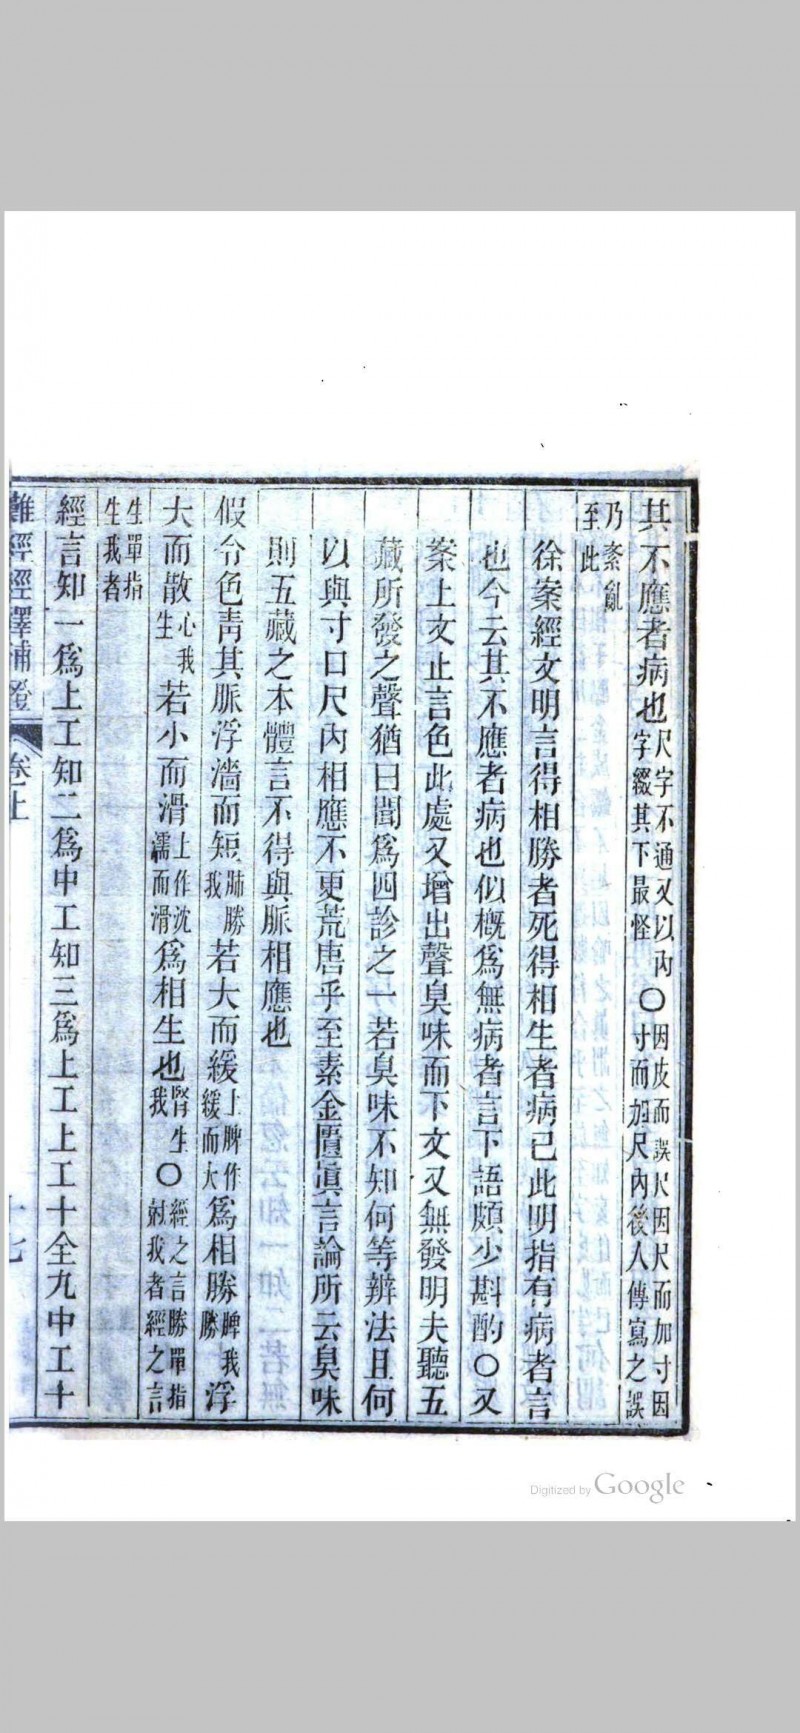 其不應者病也尺字不通又以內字綴其下最怪〇因皮而誤尺因尺而加寸因寸而加尺內後人傳寫之誤
乃紊亂至此
徐案經文明言得相勝者死得相生者病已此明指有病者言
也今云其不應者病也似概爲無病者言下語頗少斟酌〇又
案上文止言色此處又增出聲臭味而下文又無發明夫聽五
藏所發之聲猶曰聞爲四診之一若臭味不知何等辨法且何
以與寸口尺內相應不更荒唐乎至素金匱眞言論所云臭味
則五藏之本體言不得與脈相應也
假令色靑其脈浮濇而短肺勝我若大而緩上脾作緩而大爲相勝脾我勝浮
大而散心我生若小而滑上作沈濡而滑爲相生也腎生我〇經之言勝單指尅我者經之言
生單指生我者
經言知一爲上工知二爲中工知三爲上工上工十全九中工十
難經經釋補證
卷上
十七
Digitized by Google